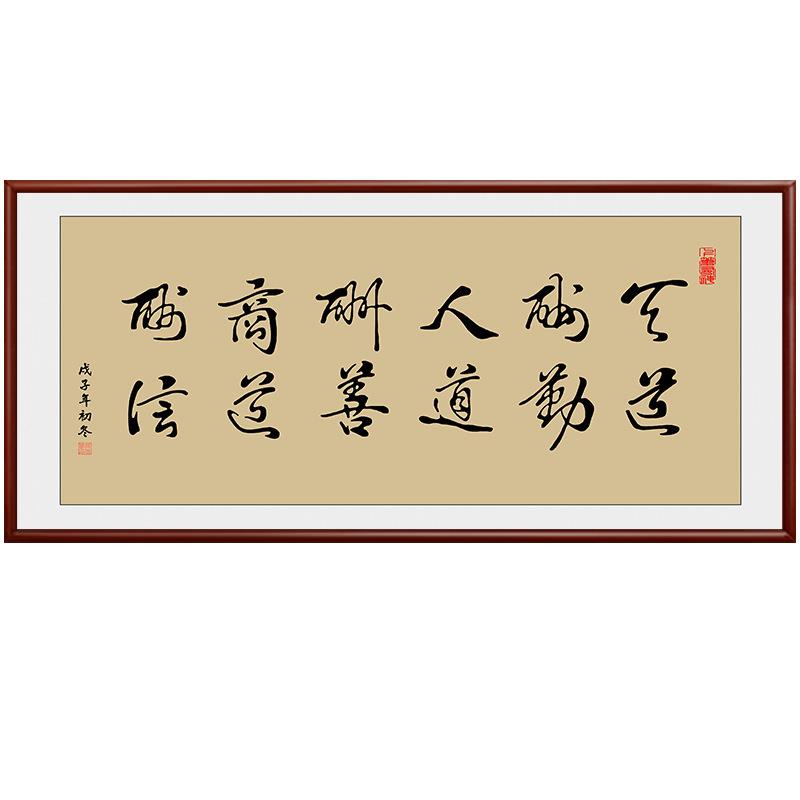 天道
酬勤
人道
酬善
商道
酬信
戊子年初冬